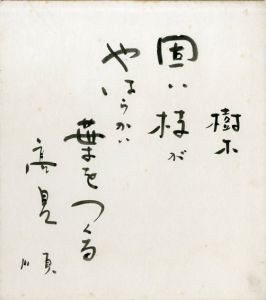 樹木
固い枝が
やはらかい
葉をつくる
高見順